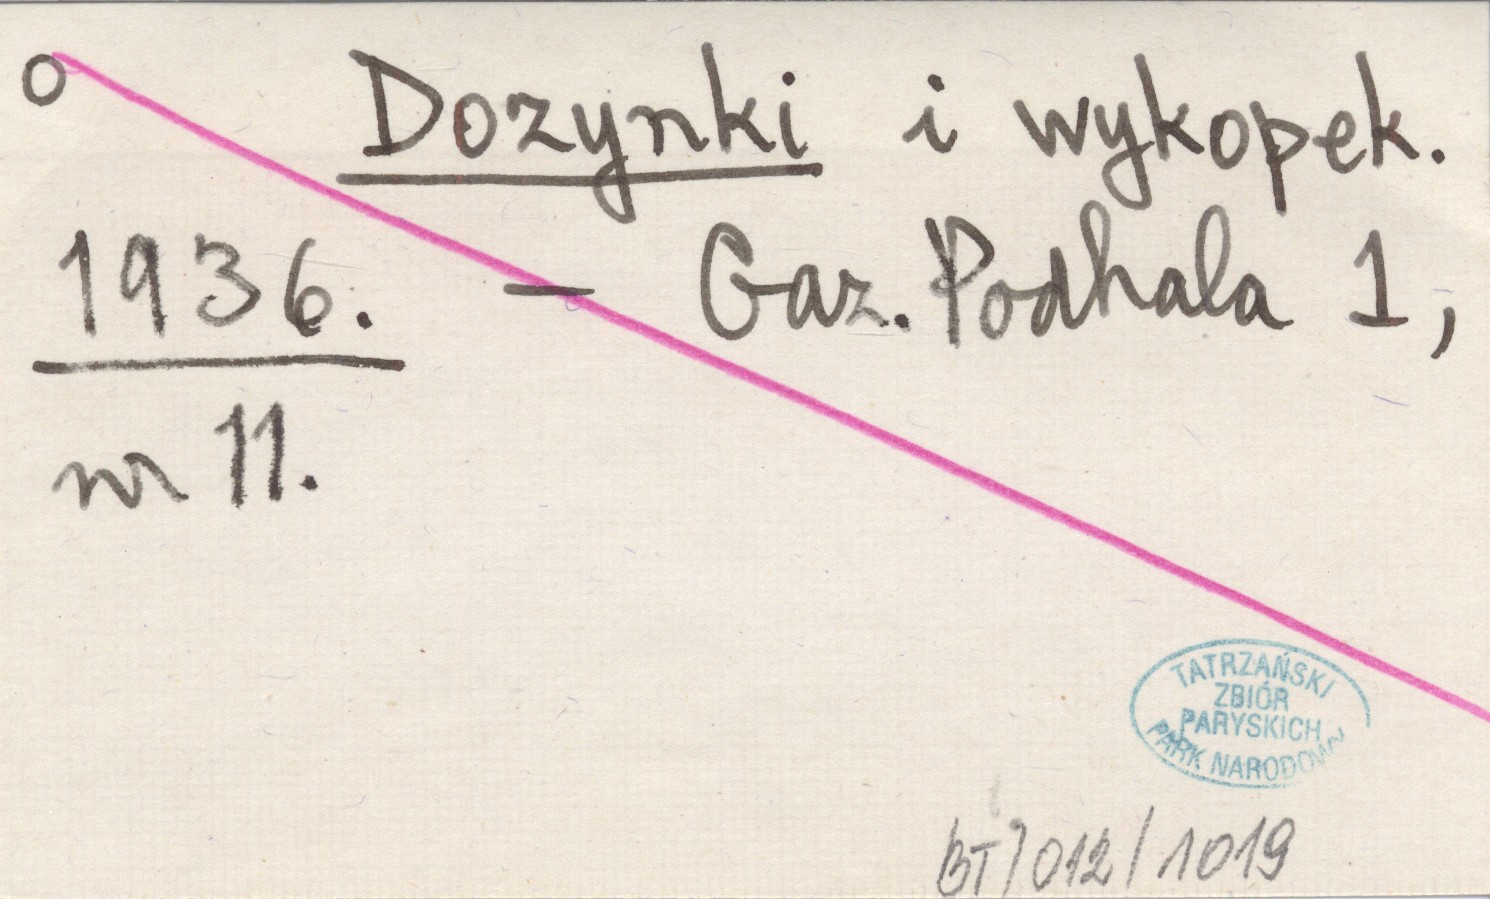 o Dozynki i wykopek.
1936. – Gaz. Podhala 1,
nr 11.
TATRZAŃSKI
ZBIÓR
PARYSKICH
PARK NARODOWY
BT/012/1019